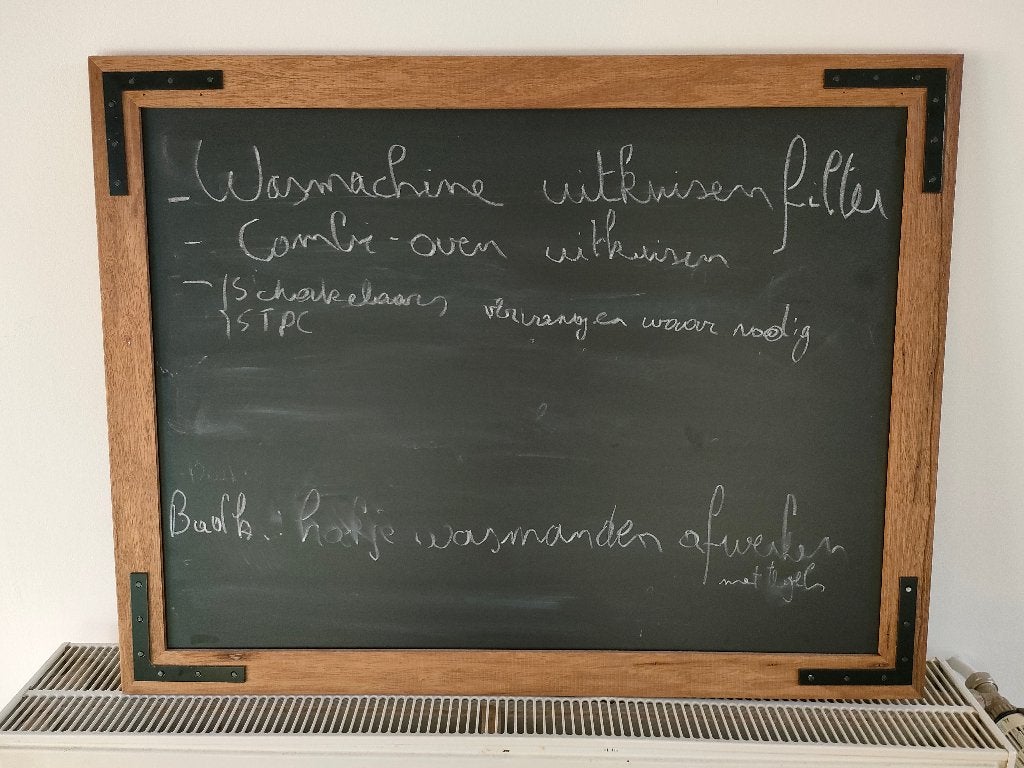 - Wasmachine uitkuisen filter
- Combi-oven uitkuisen
- Schakelaars vervangen waar nodig
STPC
Badk.: hokje wasmanden afwerken
met tegels